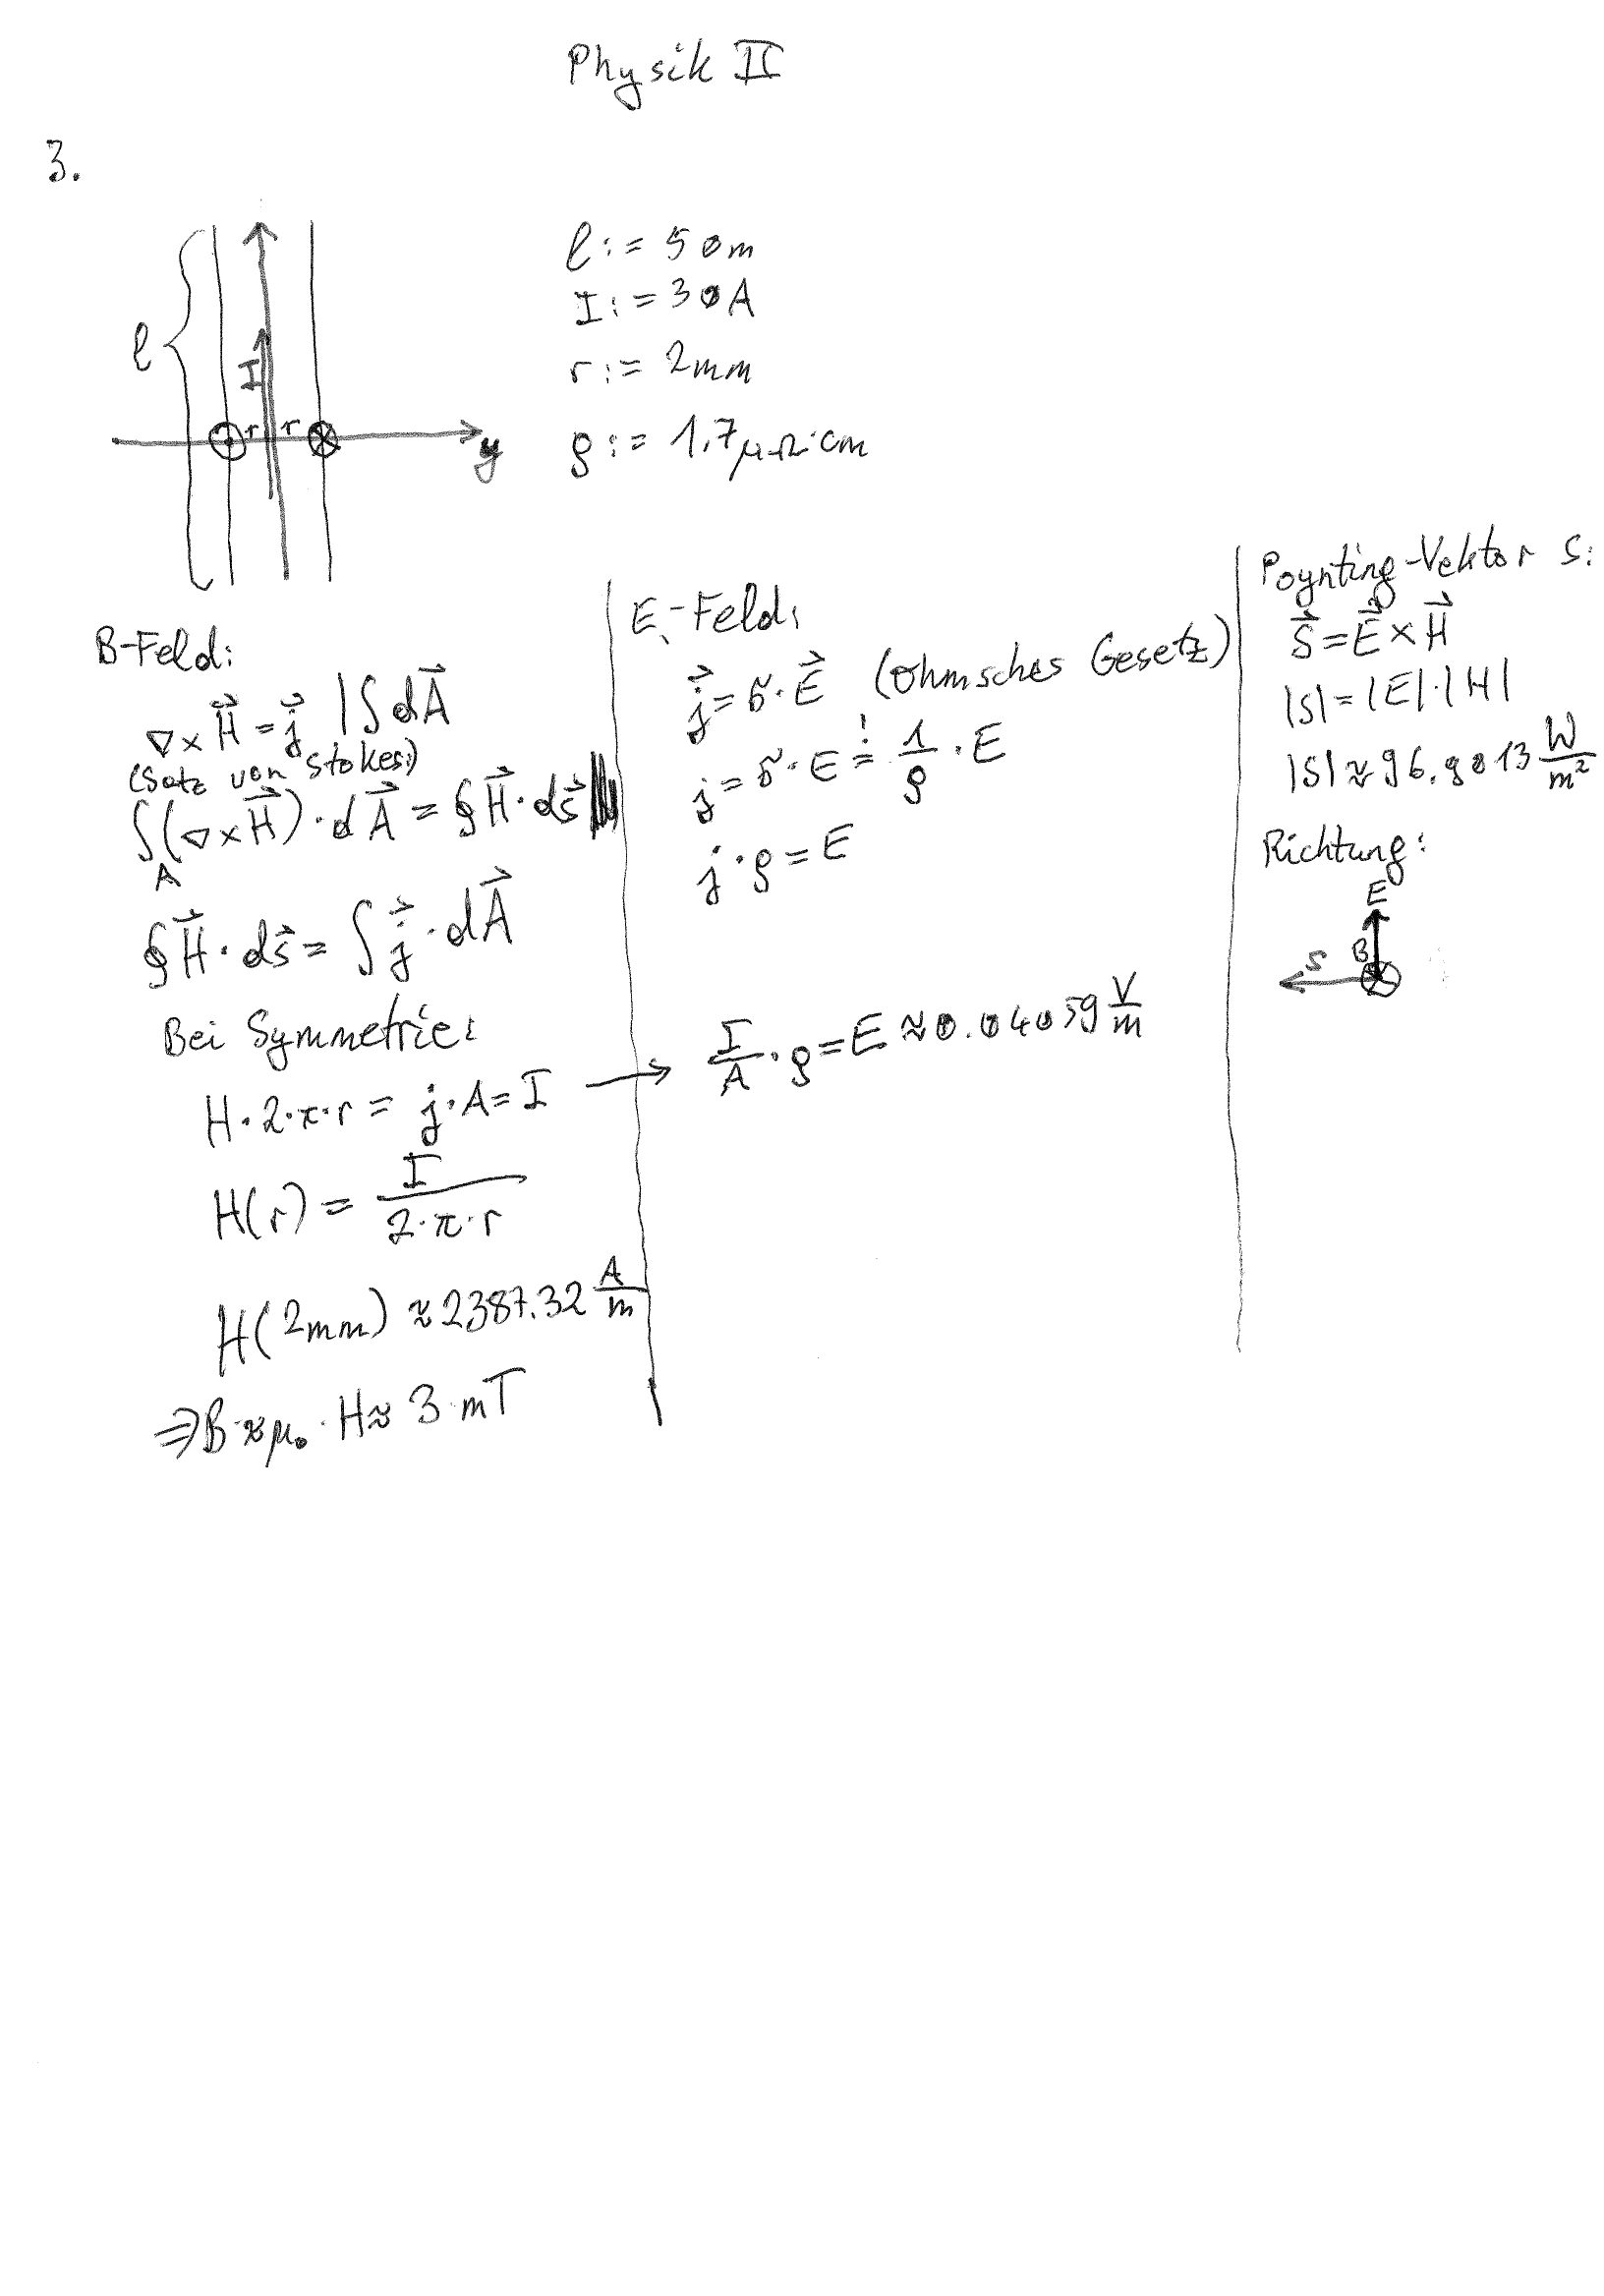 Physik II
3.
l
I
r r
y
l := 50m
I := 30A
r := 2mm
ρ := 1,7μ·Ω·cm
B-Feld:
∇×H⃗ = j⃗ |∫dA⃗
(Satz von Stokes:)
∫_A (∇×H⃗)·dA⃗ = ∮H⃗·ds⃗
∮H⃗·ds⃗ = ∫j⃗·dA⃗
Bei Symmetrie:
H·2·π·r = j·A = I
H(r) = I/(2·π·r)
H(2mm) ≈ 2387.32 A/m
⇒ B ≈ μ₀·H ≈ 3 mT
E-Feld:
j⃗ = σ·E⃗ (Ohmsches Gesetz)
j = σ·E =! 1/ρ · E
j·ρ = E
→ I/A · ρ = E ≈ 0.04059 V/m
Poynting-Vektor S:
S⃗ = E⃗ × H⃗
|S| = |E|·|H|
|S| ≈ 96.9013 W/m²
Richtung:
E
S B